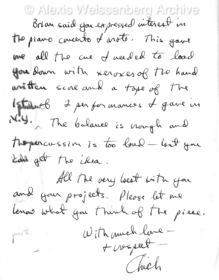 © Alexis Weissenberg Archive
Brian said you expressed interest in
the piano concerto I wrote. This gave
me all the cue I needed to load
you down with xeroxes of the hand
written score and a tape of the
of 2 performances I gave in
N.Y. The balance is rough and
the percussion is too loud – but you
get the idea.
All the very best with you
and your projects. Please let me
know what you think of the piece.
With much love –
& respect –
Chick